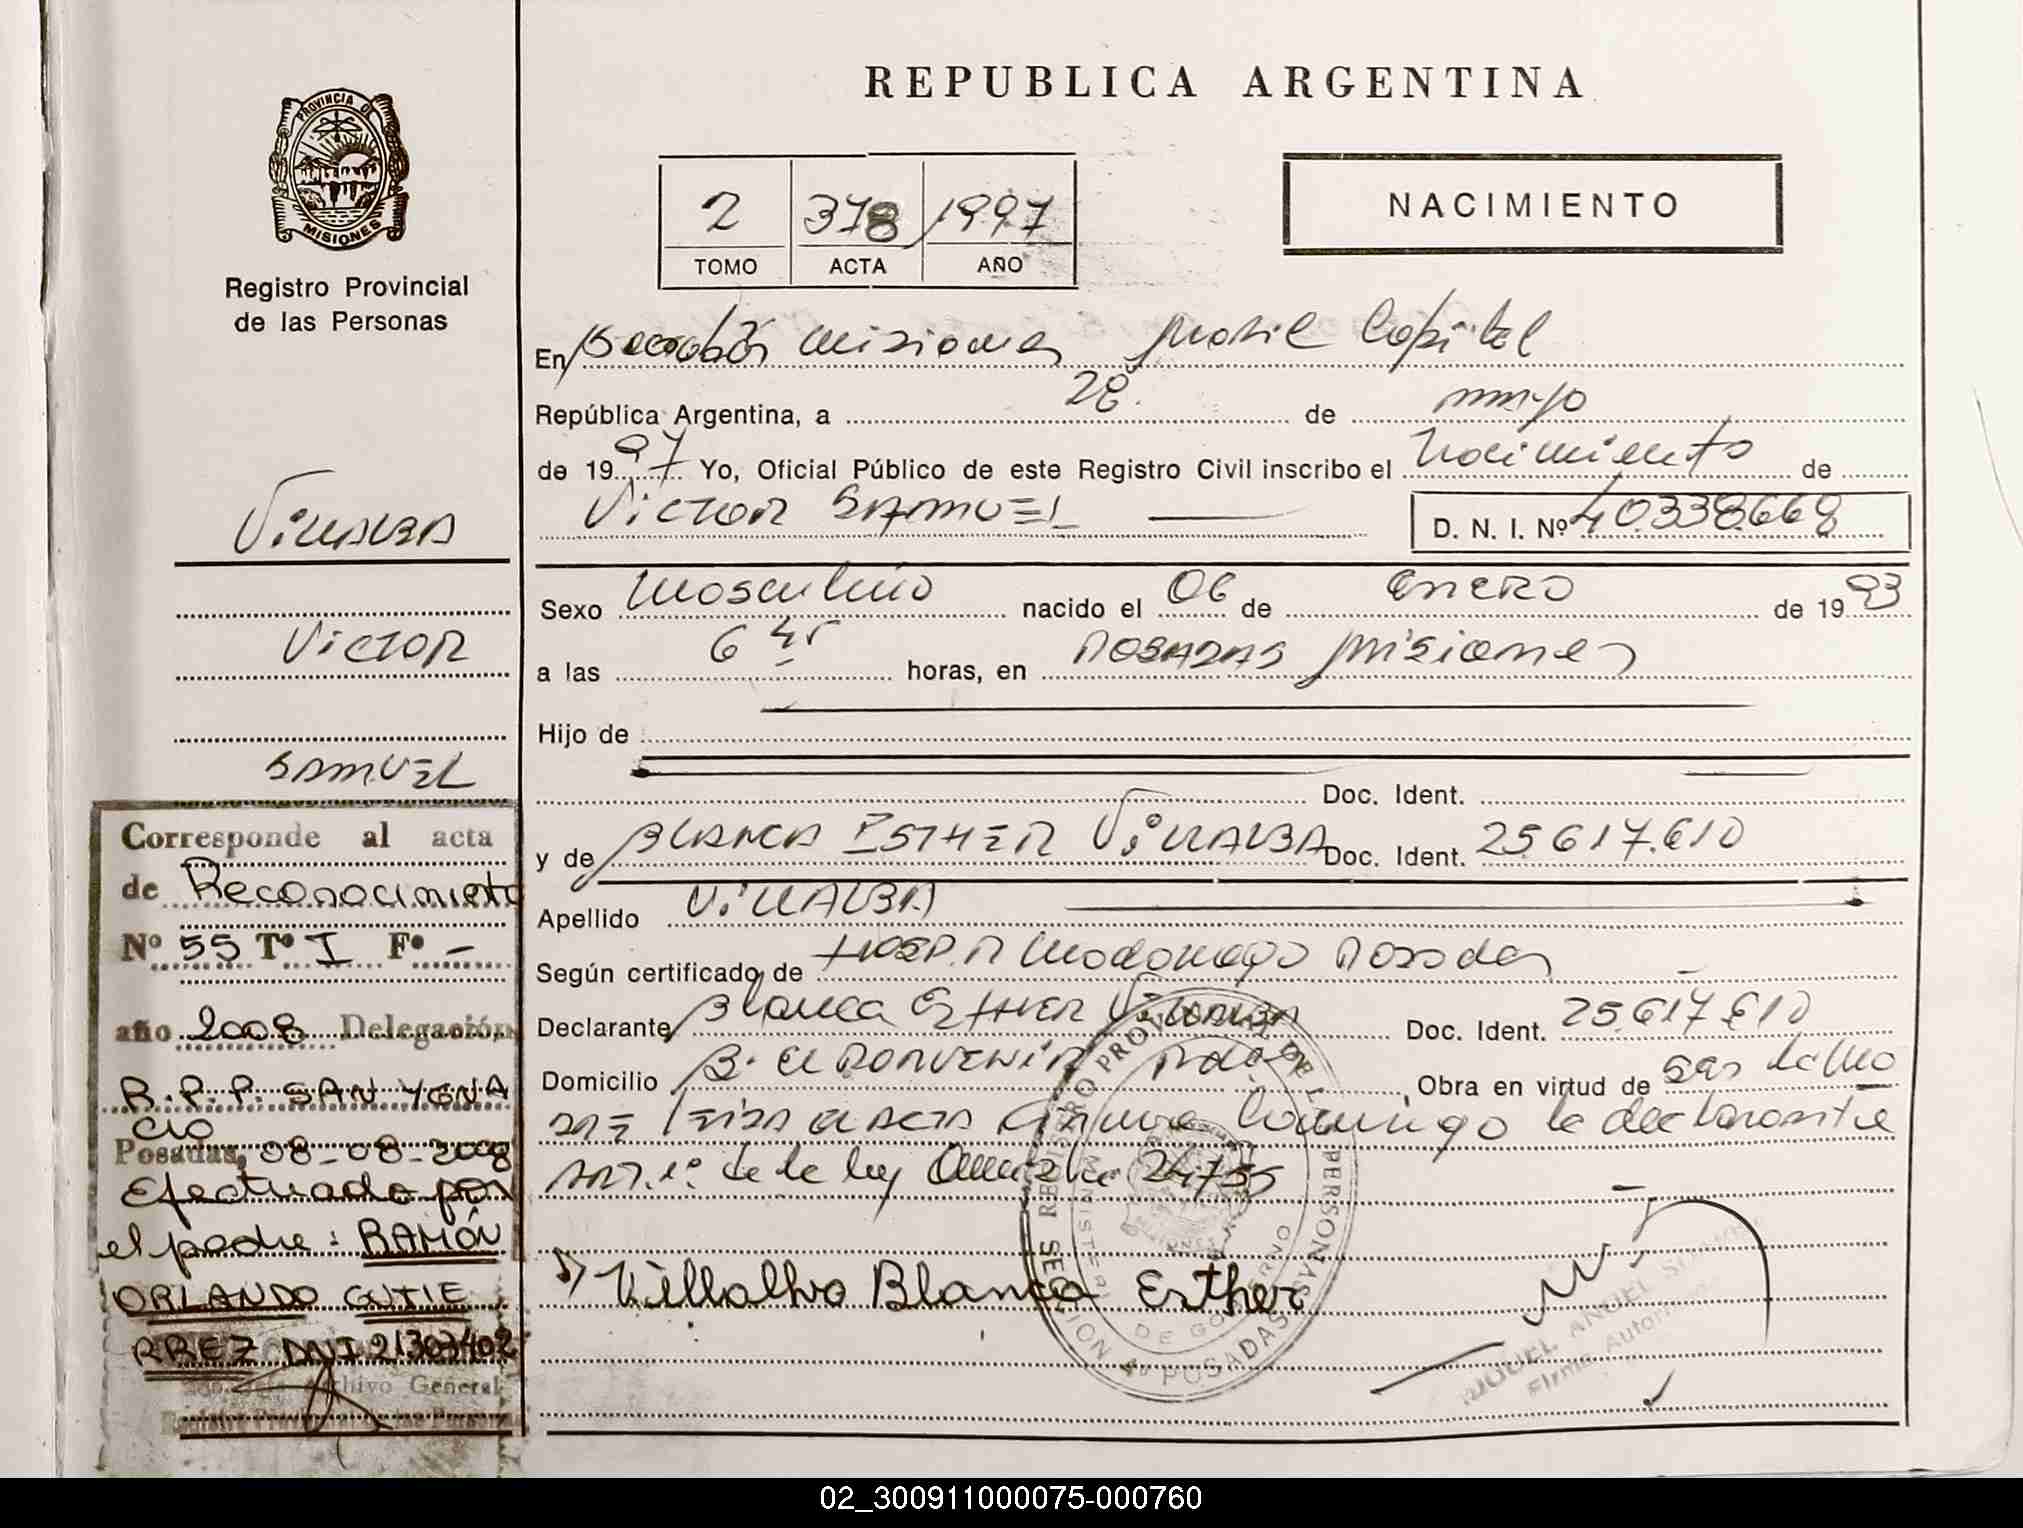 REPUBLICA ARGENTINA
PROVINCIA DE
MISIONES
Registro Provincial
de las Personas
2 378 1997
TOMO ACTA AÑO
NACIMIENTO
En misiones movil Capital
República Argentina, a 28. de mayo
de 1997 Yo, Oficial Público de este Registro Civil inscribo el Nacimiento de
VICTOR SAMUEL D. N. I. Nº 40.338.668
Sexo Masculino nacido el 06 de enero de 1993
a las 6 hs horas, en POSADAS misiones
Hijo de
Doc. Ident.
y de BLANCA ESTHER VILLALBA Doc. Ident. 25.617.610
Apellido VILLALBA
Según certificado de HOSP. R Madariaga Posadas
Declarante Blanca ESTHER VILLALBA Doc. Ident. 25.617.610
Domicilio B. El PORVENIR Pdas, Obra en virtud de ser la Mo
DRE leida el ACTA firma conmigo la declarante
ART. 1º de la ley 24755
Villalba Blanca Esther
REGISTRO PROVINCIAL DE LAS PERSONAS
MINISTERIO DE GOBIERNO
SECCION POSADAS
MIGUEL ANGEL
Firma Autorizada
VILLALBA
VICTOR
SAMUEL
Corresponde al acta
de Reconocimiento
Nº 55 Tº I Fº -
año 2008 Delegación,
R.P.P. SAN YGNA
CIO
Posadas, 08-08-2008
Efectuado por
el padre: RAMÓN
ORLANDO GUTIE
RREZ DNI 21307402
Archivo General
02_300911000075-000760